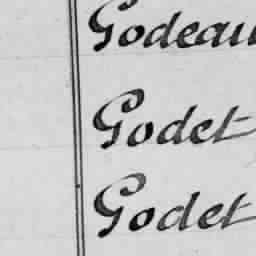 Godeau
Godet
Godet